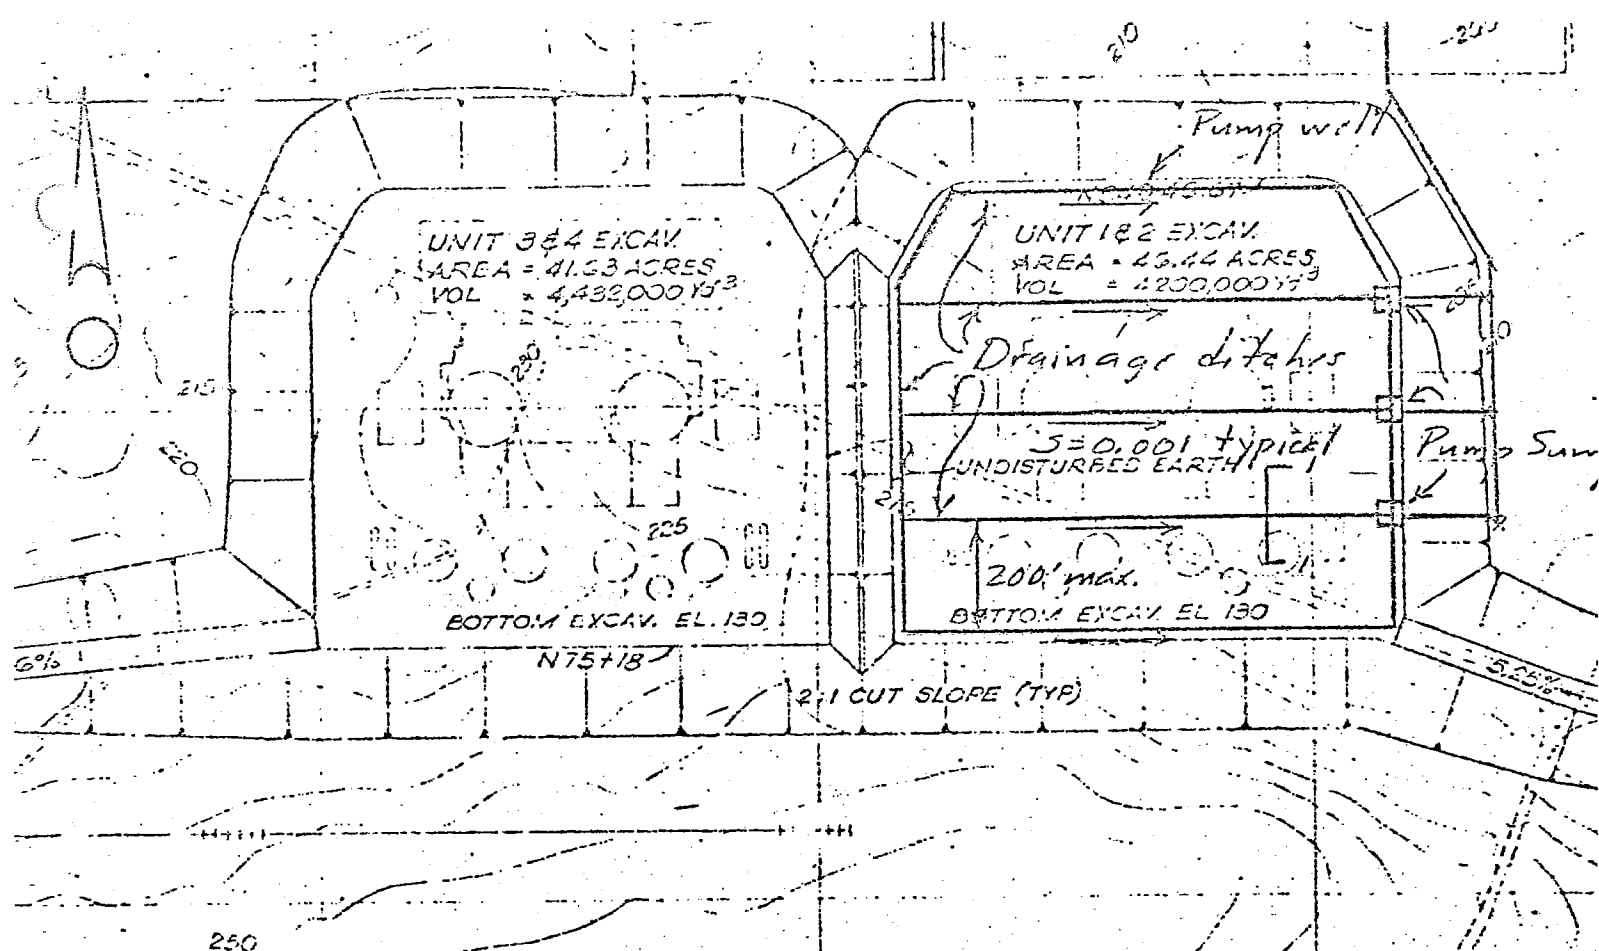 210
Pump well
UNIT 3&4 EXCAV.
AREA = 41.33 ACRES
VOL = 4,432,000 Yd³
UNIT 1&2 EXCAV.
AREA = 43.44 ACRES
VOL = 4200,000 Yd³
230
Drainage ditches
215
220
S=0.001 typical
UNDISTURBED EARTH
Pump Sum
225
200' max.
BOTTOM EXCAV. EL. 130
BOTTOM EXCAV. EL 130
6%
N75+18
5.25%
2:1 CUT SLOPE (TYP)
250